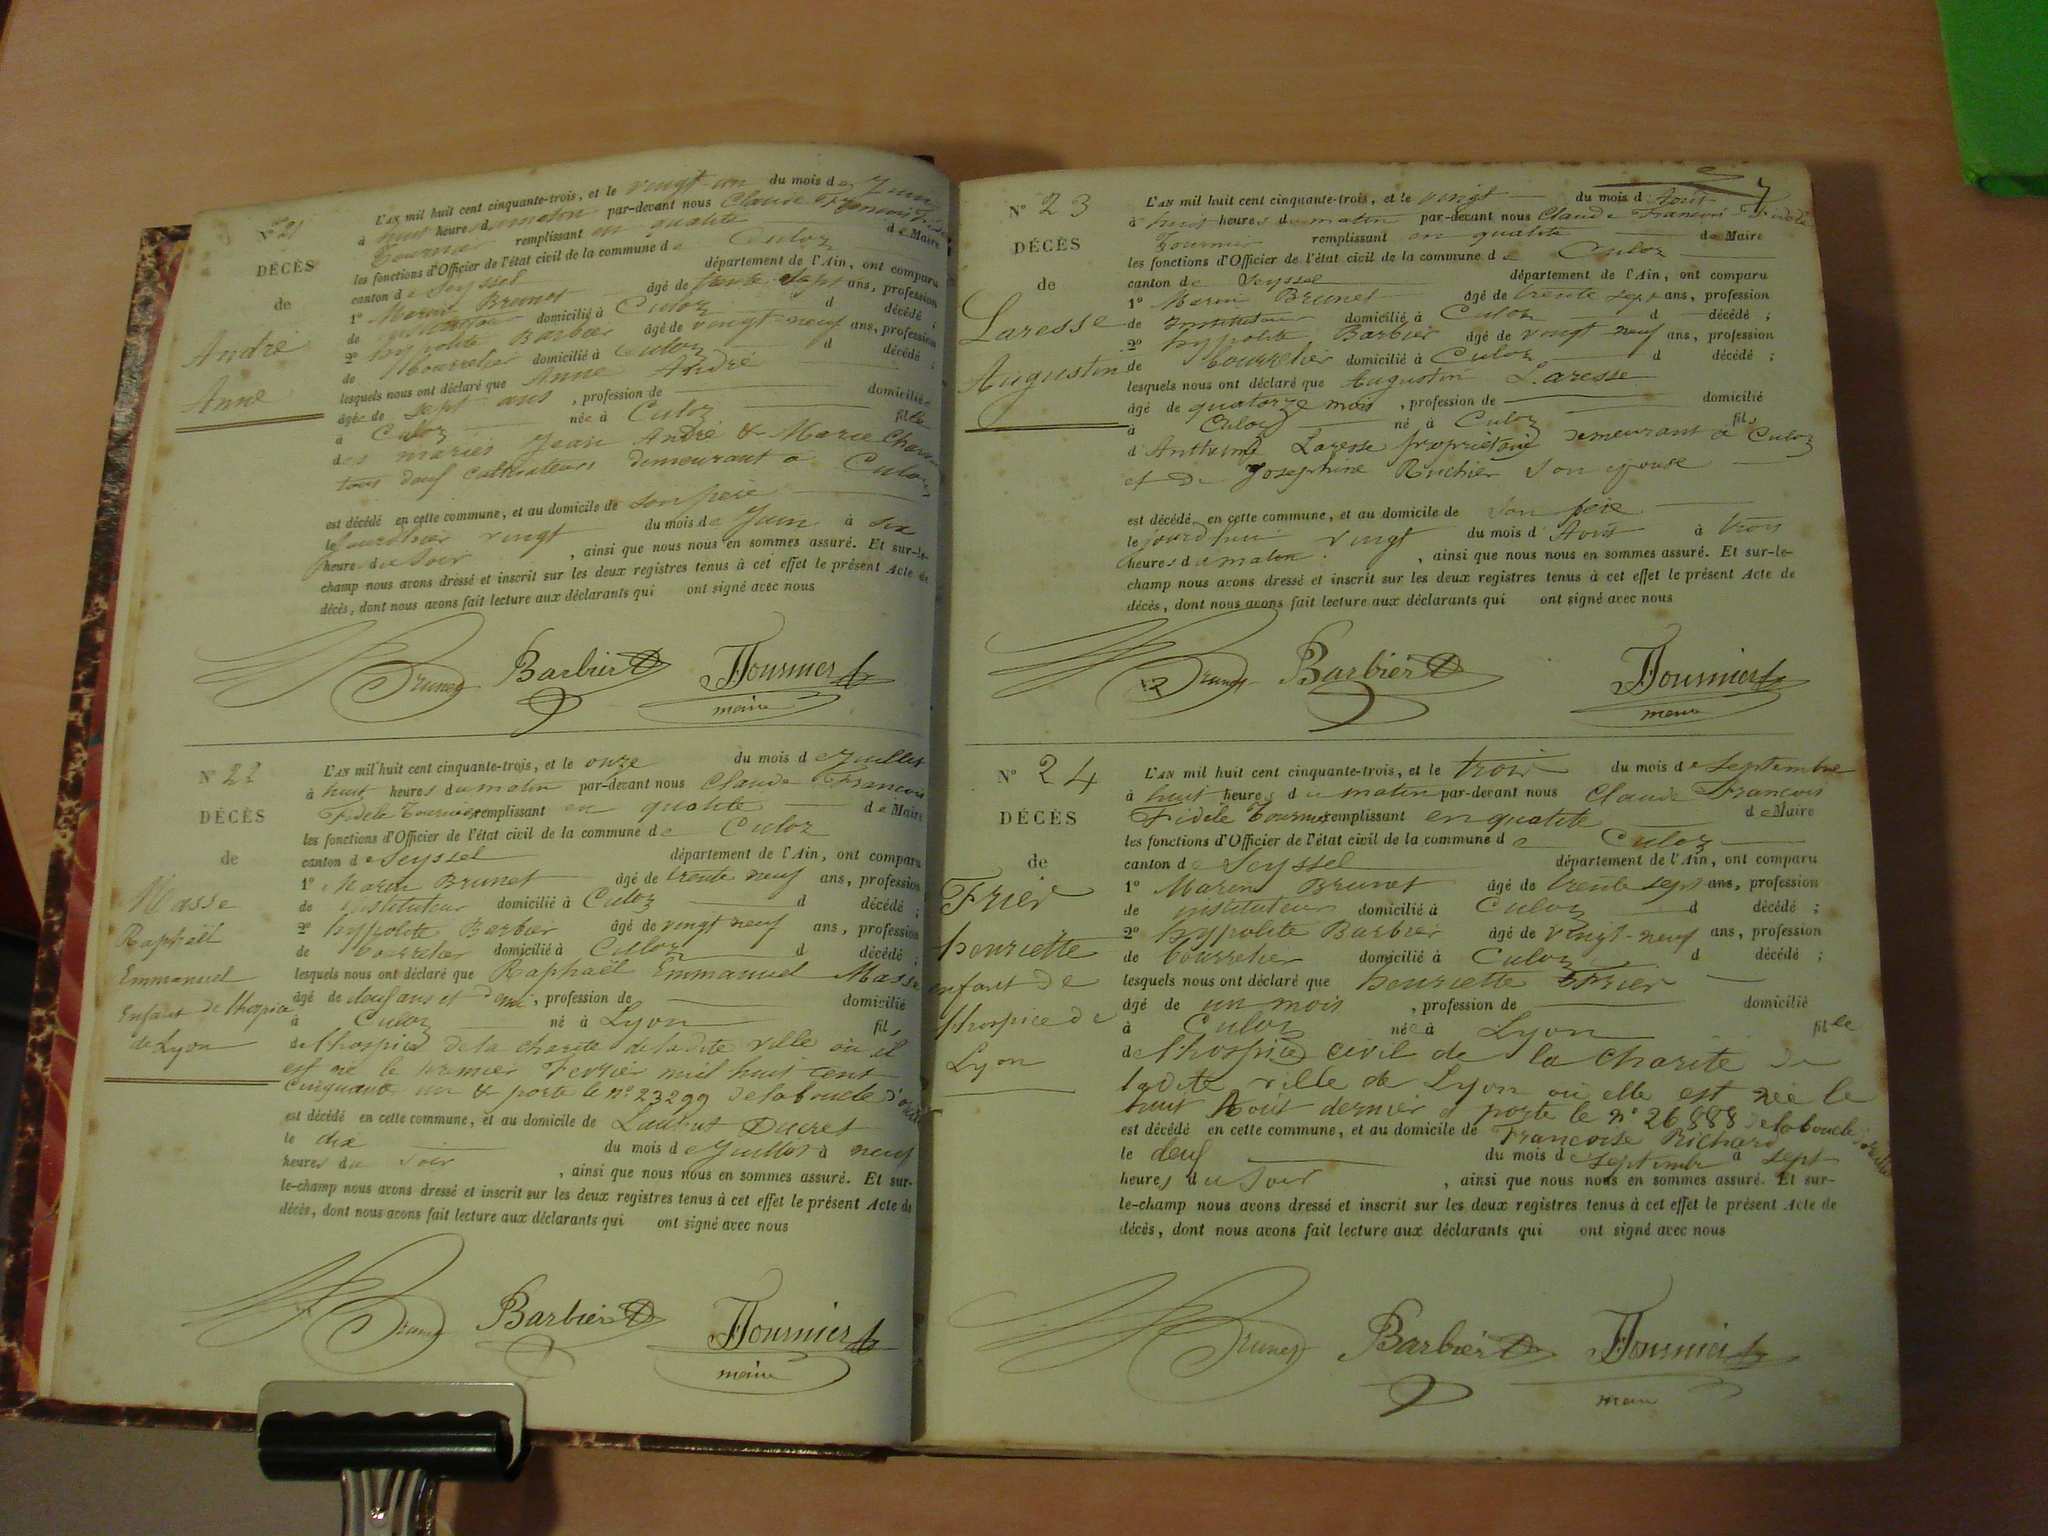 N° 21
DÉCÈS
de
André
Anne
L'AN mil huit cent cinquante-trois, et le vingt-un du mois de Juin
à huit heures du matin par-devant nous Claude François Fidèle
Fournier remplissant en qualité de Maire
les fonctions d'Officier de l'état civil de la commune de Culoz
canton de Seyssel département de l'Ain, ont comparu
1° Marin Brunet âgé de trente sept ans, profession
de instituteur domicilié à Culoz d décédé ;
2° hypolite Barbier âgé de vingt-neuf ans, profession
de bourrelier domicilié à Culoz d décédé ;
lesquels nous ont déclaré que Anne André
âgée de sept ans , profession de domiciliée
à Culoz née à Culoz fille
des mariés Jean André & Marie
tous deux cultivateurs demeurant à Culoz
est décédé en cette commune, et au domicile de son père
le jourdhier vingt du mois de Juin à six
heures du soir , ainsi que nous nous en sommes assuré. Et sur-le-
champ nous avons dressé et inscrit sur les deux registres tenus à cet effet le présent Acte de
décès, dont nous avons fait lecture aux déclarants qui ont signé avec nous
Brunet Barbier Fournier
maire
N° 22
DÉCÈS
de
Masse
Raphaël
Emmanuel
Enfant de l'hospice
de Lyon
L'AN mil huit cent cinquante-trois, et le onze du mois de Juillet
à huit heures du matin par-devant nous Claude François
Fidèle Fournier remplissant en qualité de Maire
les fonctions d'Officier de l'état civil de la commune de Culoz
canton de Seyssel département de l'Ain, ont comparu
1° Marin Brunet âgé de trente neuf ans, profession
de instituteur domicilié à Culoz d décédé ;
2° hypolite Barbier âgé de vingt neuf ans, profession
de bourrelier domicilié à Culoz d décédé ;
lesquels nous ont déclaré que Raphaël Emmanuel Masse
âgé de deux ans et demi , profession de domicilié
à Culoz né à Lyon fils
de l'hospice de la charité de ladite ville où il
est né le premier Fevrier mil huit cent
Cinquante un & porte le n° 23299 de la boucle d'oreille
est décédé en cette commune, et au domicile de Laubut Ducret
le dix du mois de Juillet à neuf
heures du soir , ainsi que nous nous en sommes assuré. Et sur-
le-champ nous avons dressé et inscrit sur les deux registres tenus à cet effet le présent Acte de
décès, dont nous avons fait lecture aux déclarants qui ont signé avec nous
Brunet Barbier Fournier
maire
7
N° 23
DÉCÈS
de
Laresse
Augustin
L'AN mil huit cent cinquante-trois, et le vingt du mois d Août
à huit heures du matin par-devant nous Claude François Fidèle
Fournier remplissant en qualité de Maire
les fonctions d'Officier de l'état civil de la commune de Culoz
canton de Seyssel département de l'Ain, ont comparu
1° Marin Brunet âgé de trente sept ans, profession
de instituteur domicilié à Culoz d décédé ;
2° hypolite Barbier âgé de vingt neuf ans, profession
de bourrelier domicilié à Culoz d décédé ;
lesquels nous ont déclaré que Augustin Laresse
âgé de quatorze mois , profession de domicilié
à Culoz né à Culoz fils
d'Anthelme Laresse propriétaire demeurant à Culoz
et de Josephine Ruchier son épouse
est décédé en cette commune, et au domicile de son père
le jourd'hui vingt du mois d'Août à trois
heures du matin , ainsi que nous nous en sommes assuré. Et sur-le-
champ nous avons dressé et inscrit sur les deux registres tenus à cet effet le présent Acte de
décès, dont nous avons fait lecture aux déclarants qui ont signé avec nous
Brunet Barbier Fournier
maire
N° 24
DÉCÈS
de
Frier
henriette
enfant de
l'hospice de
Lyon
L'AN mil huit cent cinquante-trois, et le trois du mois de Septembre
à huit heures du matin par-devant nous Claude François
Fidèle Fournier remplissant en qualité de Maire
les fonctions d'Officier de l'état civil de la commune de Culoz
canton de Seyssel département de l'Ain, ont comparu
1° Marin Brunet âgé de trente sept ans, profession
de instituteur domicilié à Culoz d décédé ;
2° hypolite Barbier âgé de vingt-neuf ans, profession
de bourrelier domicilié à Culoz d décédé ;
lesquels nous ont déclaré que henriette Frier
âgé de un mois , profession de domicilié
à Culoz née à Lyon fille
de l'hospice civil de la charité de
ladite ville de Lyon où elle est née le
huit Août dernier & porte le n° 26888 de la boucle d'oreille
est décédé en cette commune, et au domicile de Françoise Richard
le deux du mois de Septembre à sept
heures du soir , ainsi que nous nous en sommes assuré. Et sur-
le-champ nous avons dressé et inscrit sur les deux registres tenus à cet effet le présent Acte de
décès, dont nous avons fait lecture aux déclarants qui ont signé avec nous
Brunet Barbier Fournier
maire